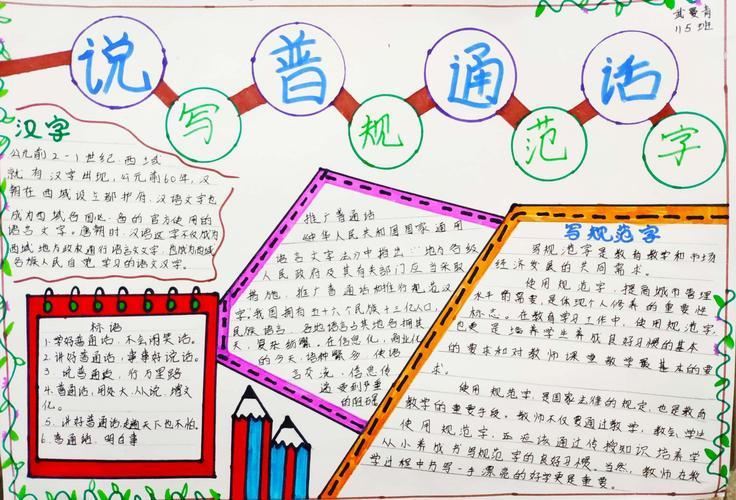 说普通话
写规范字
武曼青
115班
汉字
公元前2-1世纪,西域
就有汉字出现,公元前60年,汉
朝在西域设立都护府,汉语文字也
成为西域各国
各的官方使用的
语言文字。唐朝时,汉语汉字不仅成为
西域地方政权通行语言文字,也成为西域
各族人民自觉学习的语文汉字。
标语
1.学好普通话,不会闹笑话。
2.讲好普通话,事事好说话。
3.说普通话,行万里路
4.普通话,用处大,人人说,增文
化。
5.讲好普通话,走遍天下也不怕。
6.普通话,明白事
推广普通话
《中华人民共和国国家通用
语言文字法》中指出:“地方各级
人民政府及其有关部门应当采取
措施,推广普通话和推行规范汉
字,我国拥有五十六个民族十三亿人口,
民族语言,各地语言与其地名拥其
大,复杂纷繁。在信息化,商业化
的今天,语种繁多,使语
言交流、信息传
递受到严重
的阻碍
写规范字
写规范字是教育教学和市场
经济发展的共同需求。
使用规范字,提高城市管理
水平的需要,是体现个人修养的重要性
标志。在教育学习工作中,使用规范字,
也更是培养学生养成良好习惯的基本
的要求和对教师课堂教学最基本的要
求。
使用规范字,是国家法律的规定,也是教育
教学的重要手段。教师不仅要通过教学,教会学生
使用规范字,更应该通过传授知识培养学
从小养成书写规范字的良好习惯。当然,教师在教
学过程中书写一手漂亮的好字更是重要。